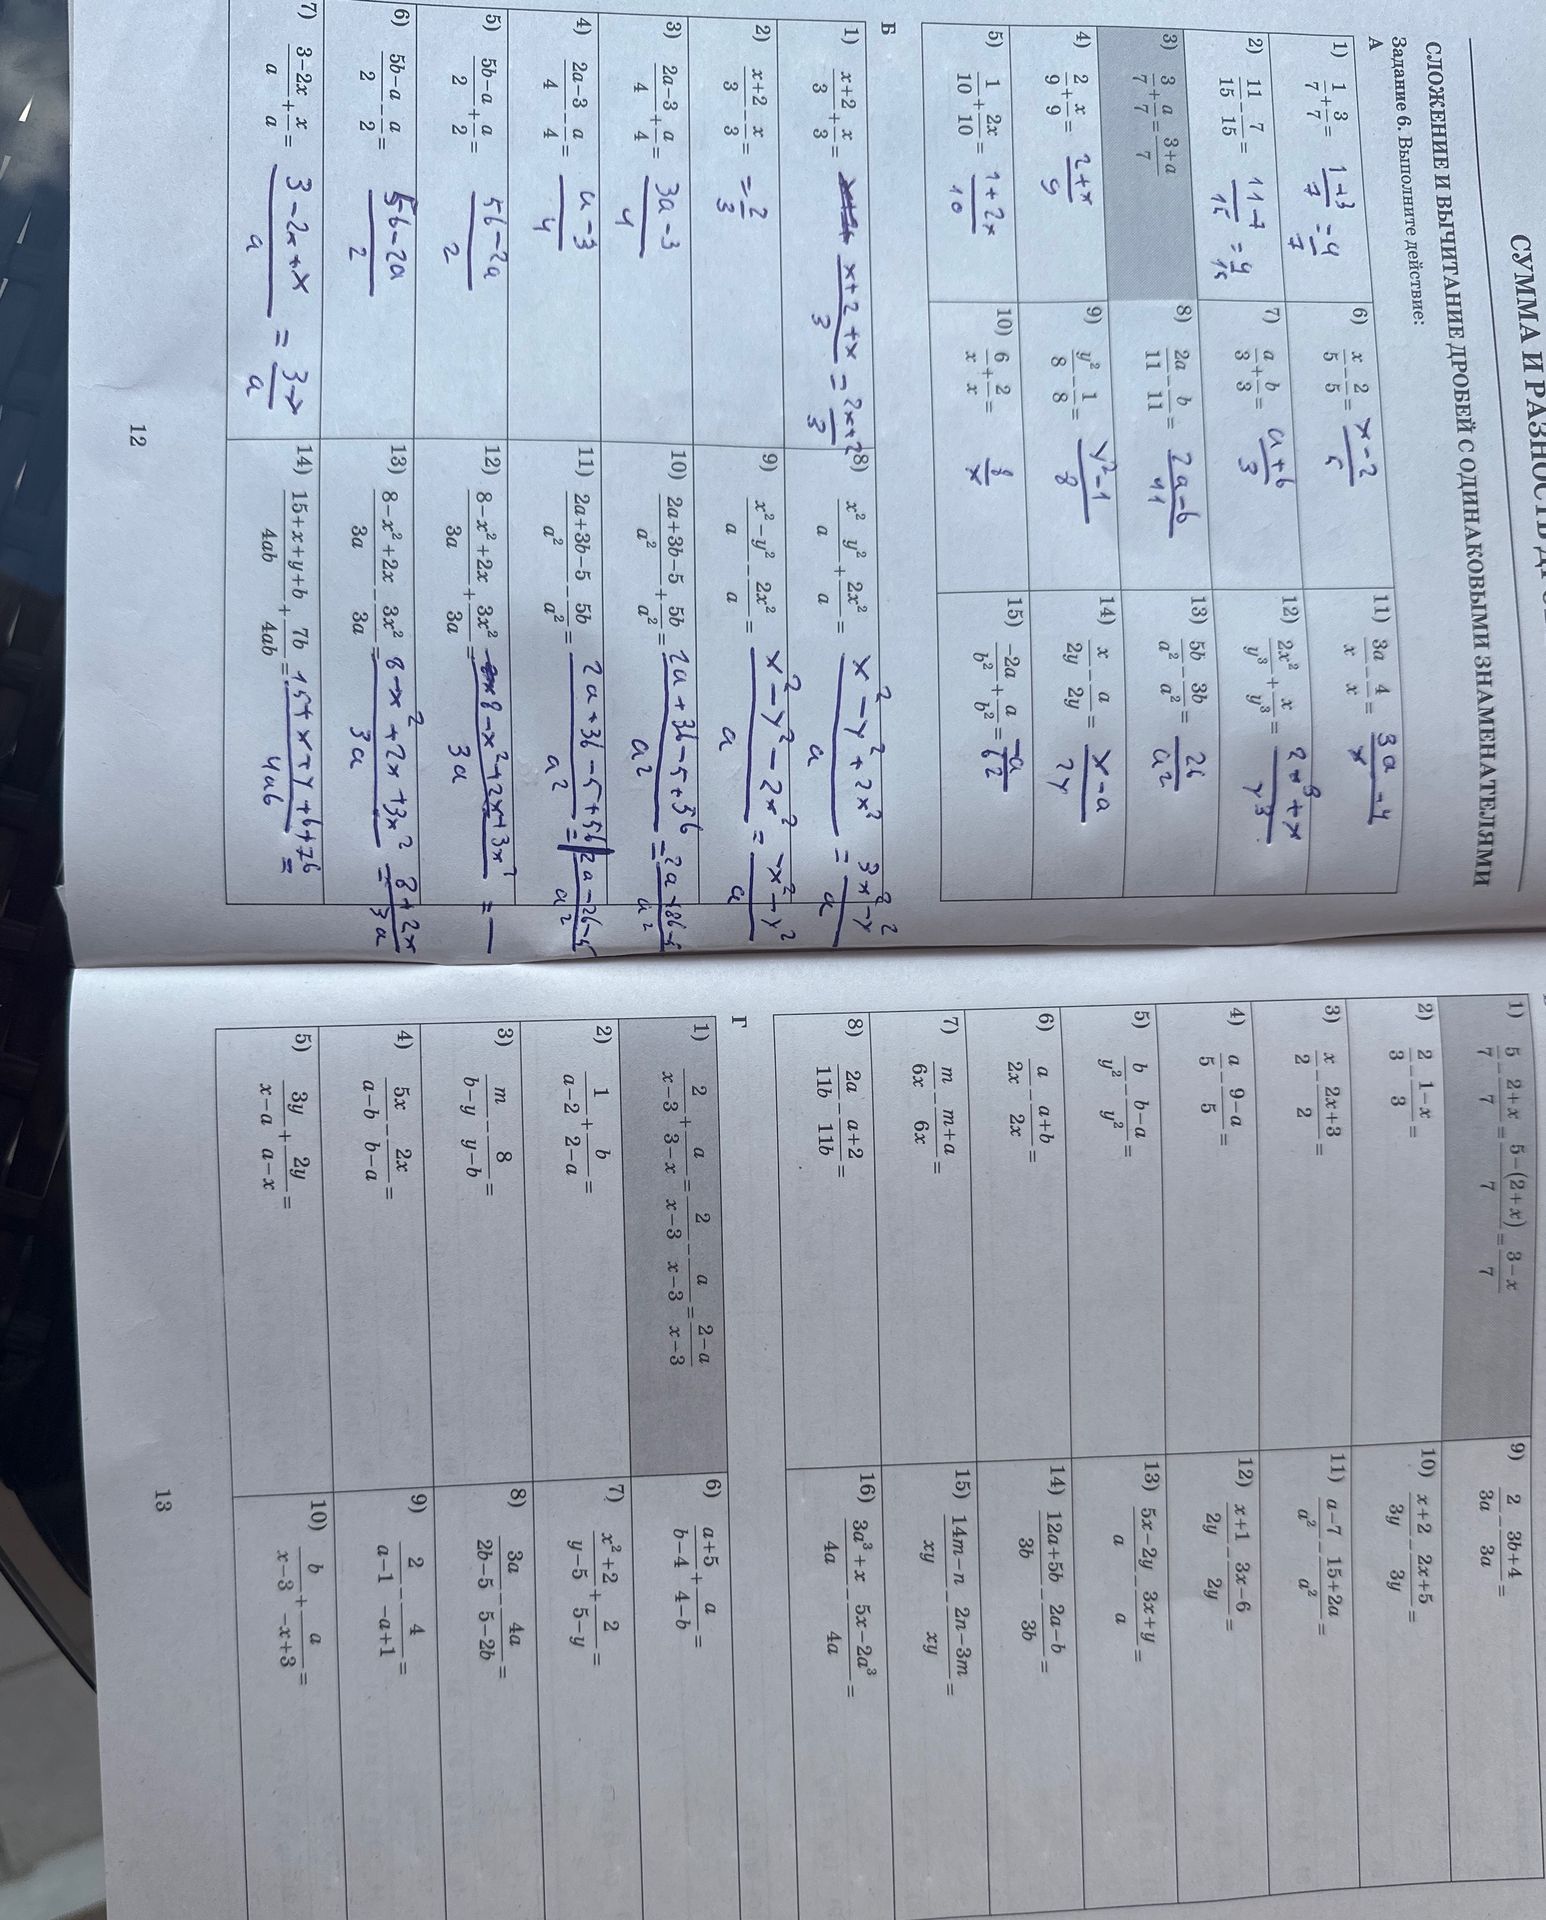 СУММА И РАЗНОСТЬ
СЛОЖЕНИЕ И ВЫЧИТАНИЕ ДРОБЕЙ С ОДИНАКОВЫМИ ЗНАМЕНАТЕЛЯМИ
Задание 6. Выполните действие:
А
1) 1/7 + 3/7 = (1+3)/7 = 4/7
6) x/5 − 2/5 = (x−2)/5
11) 3a/x − 4/x = (3a−4)/x
2) 11/15 − 7/15 = (11−7)/15 = 4/15
7) a/3 + b/3 = (a+b)/3
12) 2x²/y³ + x/y³ =
3) 3/7 + a/7 = (3+a)/7
8) 2a/11 − b/11 = (2a−b)/11
13) 5b/a² − 3b/a² = 2b/a²
4) 2/9 + x/9 = (2+x)/9
9) y²/8 − 1/8 = (y²−1)/8
14) x/2y − a/2y = (x−a)/2y
5) 1/10 + 2x/10 = (1+2x)/10
10) 6/x + 2/x = 8/x
15) −2a/b² + a/b² = −a/b²
Б
1) (x+2)/3 + x/3 = (x+2+x)/3 = (2x+2)/3
8) (x² y²)/a + 2x²/a = (x²−y²+2x²)/a = (3x²−y²)/a
2) (x+2)/3 − x/3 = = 2/3
9) (x²−y²)/a − 2x²/a = (x²−y²−2x²)/a = (−x²−y²)/a
3) (2a−3)/4 + a/4 = (3a−3)/4
10) (2a+3b−5)/a² + 5b/a² = (2a+3b−5+5b)/a² = (2a+8b−5)/a²
4) (2a−3)/4 − a/4 = (a−3)/4
11) (2a+3b−5)/a² − 5b/a² = (2a+3b−5+5b)/a² = (2a−2b−5)/a²
5) (5b−a)/2 + a/2 = (5b−2a)/2
12) (8−x²+2x)/3a + 3x²/3a = (8−x²+2x+3x²)/3a =
6) (5b−a)/2 − a/2 = (5b−2a)/2
13) (8−x²+2x)/3a − 3x²/3a = (8−x²+2x+3x²)/3a = (8+2x)/3a
7) (3−2x)/a + x/a = (3−2x+x)/a =
14) (15+x+y+b)/4ab + 7b/4ab = (15+x+y+b+7b)/4ab =
12
1) 5/7 − (2+x)/7 = (5−(2+x))/7 = (3−x)/7
9) 2/3a − (3b+4)/3a =
2) 2/3 − (1−x)/3 =
10) (x+2)/3y − (2x+5)/3y =
3) x/2 − (2x+3)/2 =
11) (a−7)/a² − (15+2a)/a² =
4) a/5 − (9−a)/5 =
12) (x+1)/2y − (3x−6)/2y =
5) b/y² − (b−a)/y² =
13) (5x−2y)/a − (3x+y)/a =
6) a/2x − (a+b)/2x =
14) (12a+5b)/3b − (2a−b)/3b =
7) m/6x − (m+a)/6x =
15) (14m−n)/xy − (2n−3m)/xy =
8) 2a/11b − (a+2)/11b =
16) (3a³+x)/4a − (5x−2a³)/4a =
Г
1) 2/(x−3) + a/(3−x) = 2/(x−3) − a/(x−3) = (2−a)/(x−3)
6) (a+5)/(b−4) + a/(4−b) =
2) 1/(a−2) + b/(2−a) =
7) (x²+2)/(y−5) + 2/(5−y) =
3) m/(b−y) − 8/(y−b) =
8) 3a/(2b−5) − 4a/(5−2b) =
4) 5x/(a−b) − 2x/(b−a) =
9) 2/(a−1) − 4/(−a+1) =
5) 3y/(x−a) + 2y/(a−x) =
10) b/(x−3) + a/(−x+3) =
13